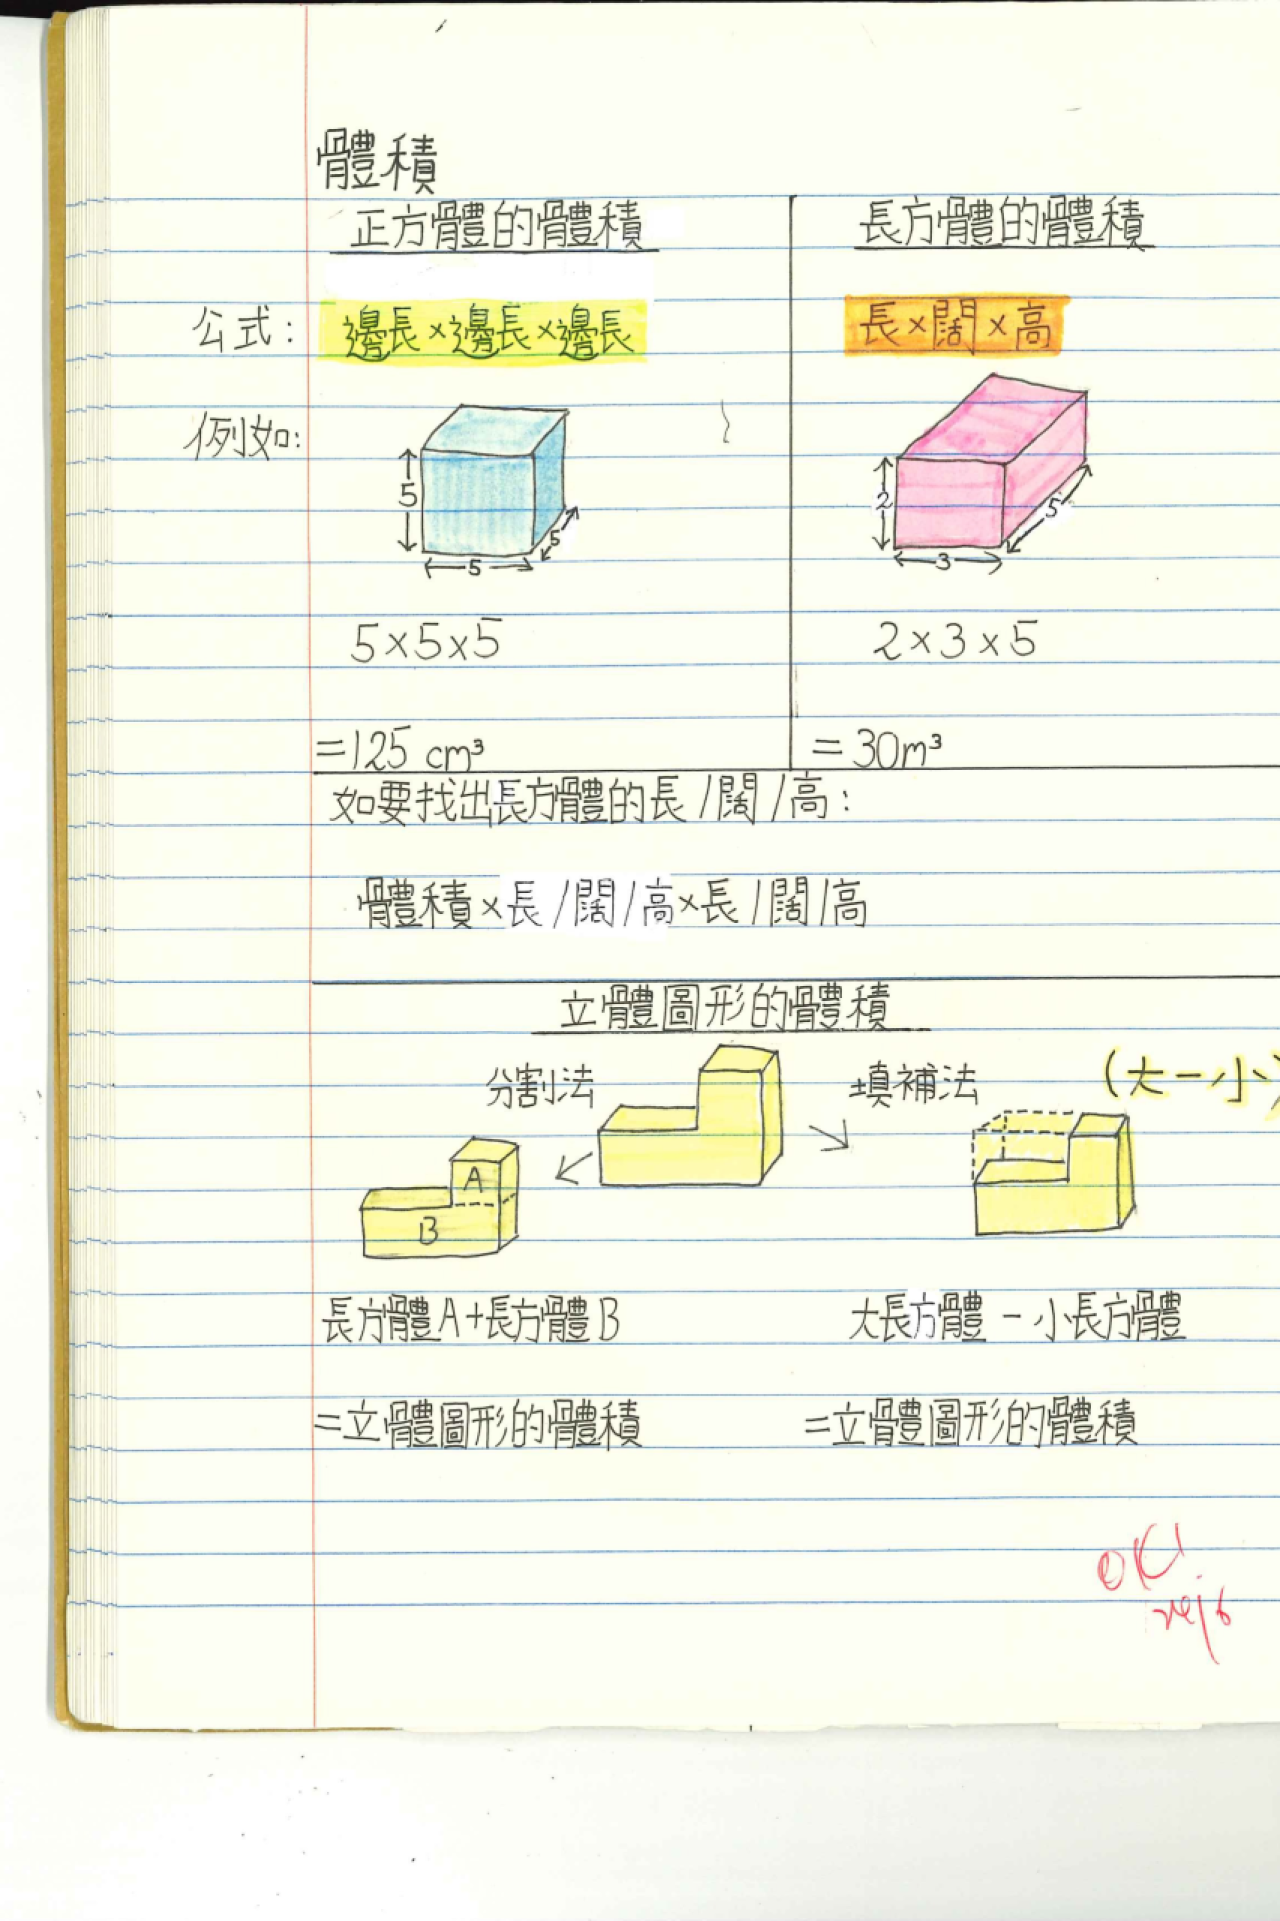 體積
正方體的體積
長方體的體積
公式：
邊長×邊長×邊長
長×闊×高
例如：
5
5
5
2
3
5
5×5×5
2×3×5
=125 cm³
=30m³
如要找出長方體的長/闊/高：
體積×長/闊/高×長/闊/高
立體圖形的體積
分割法
填補法
(大－小)
A
B
長方體A+長方體B
大長方體－小長方體
=立體圖形的體積
=立體圖形的體積
OK!